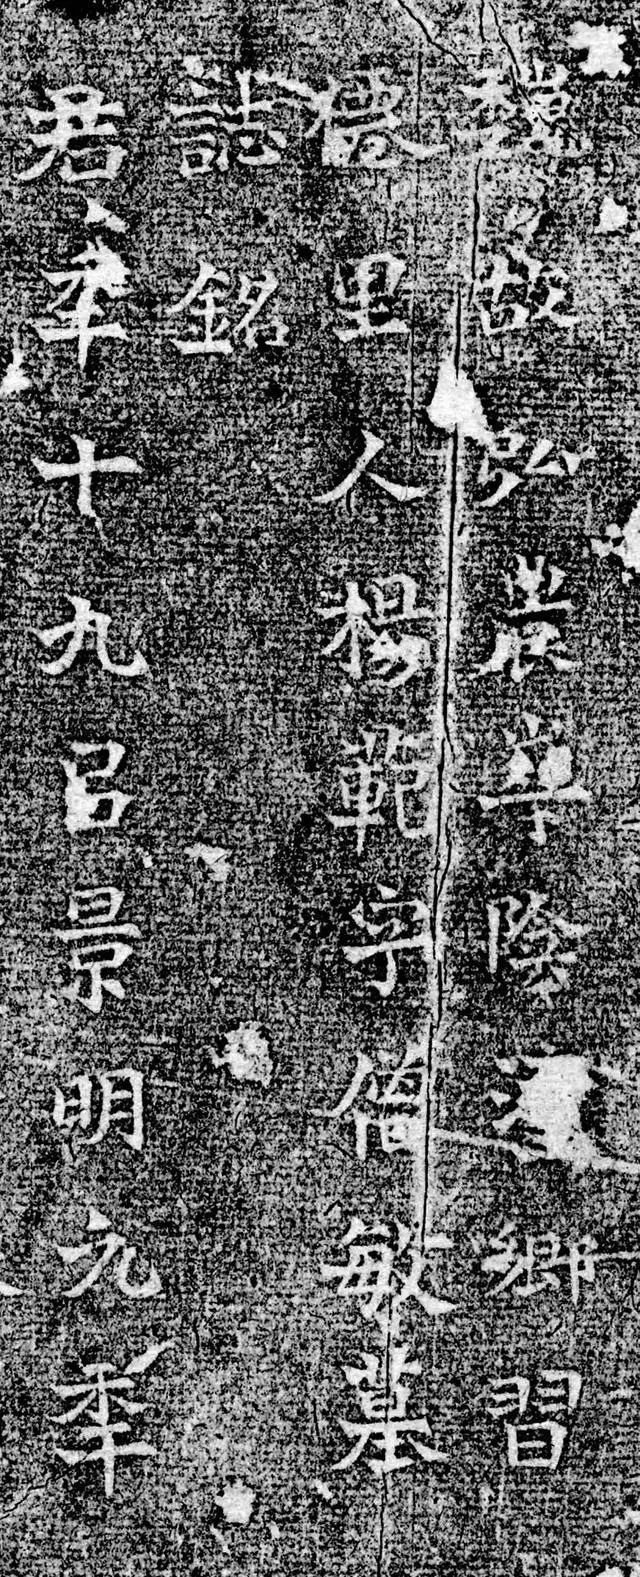 魏故弘農華陰潼鄉習
僊里人楊範字僧敏墓
誌銘
君年十九以景明元年